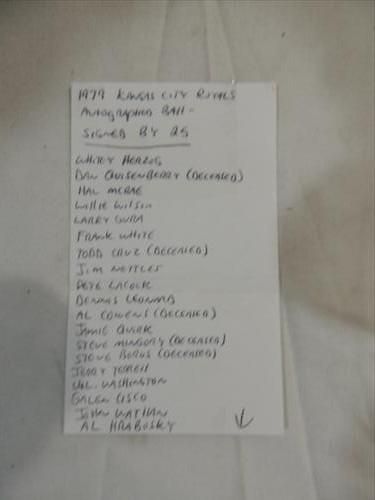 1979 KANSAS CITY ROYALS
AUTOGRAPHED BALL -
SIGNED BY 25
WHITEY HERZOG
DAN QUISENBERRY (DECEASED)
HAL MCRAE
WILLIE WILSON
LARRY GURA
FRANK WHITE
TODD CRUZ (DECEASED)
JIM NETTLES
PETE LACOCK
DENNIS LEONARD
AL COWENS (DECEASED)
JAMIE QUIRK
STEVE MINGORY (DECEASED)
STEVE BOROS (DECEASED)
JERRY TERRELL
U.L. WASHINGTON
GALEN CISCO
JOHN WATHAN
AL HRABOSKY